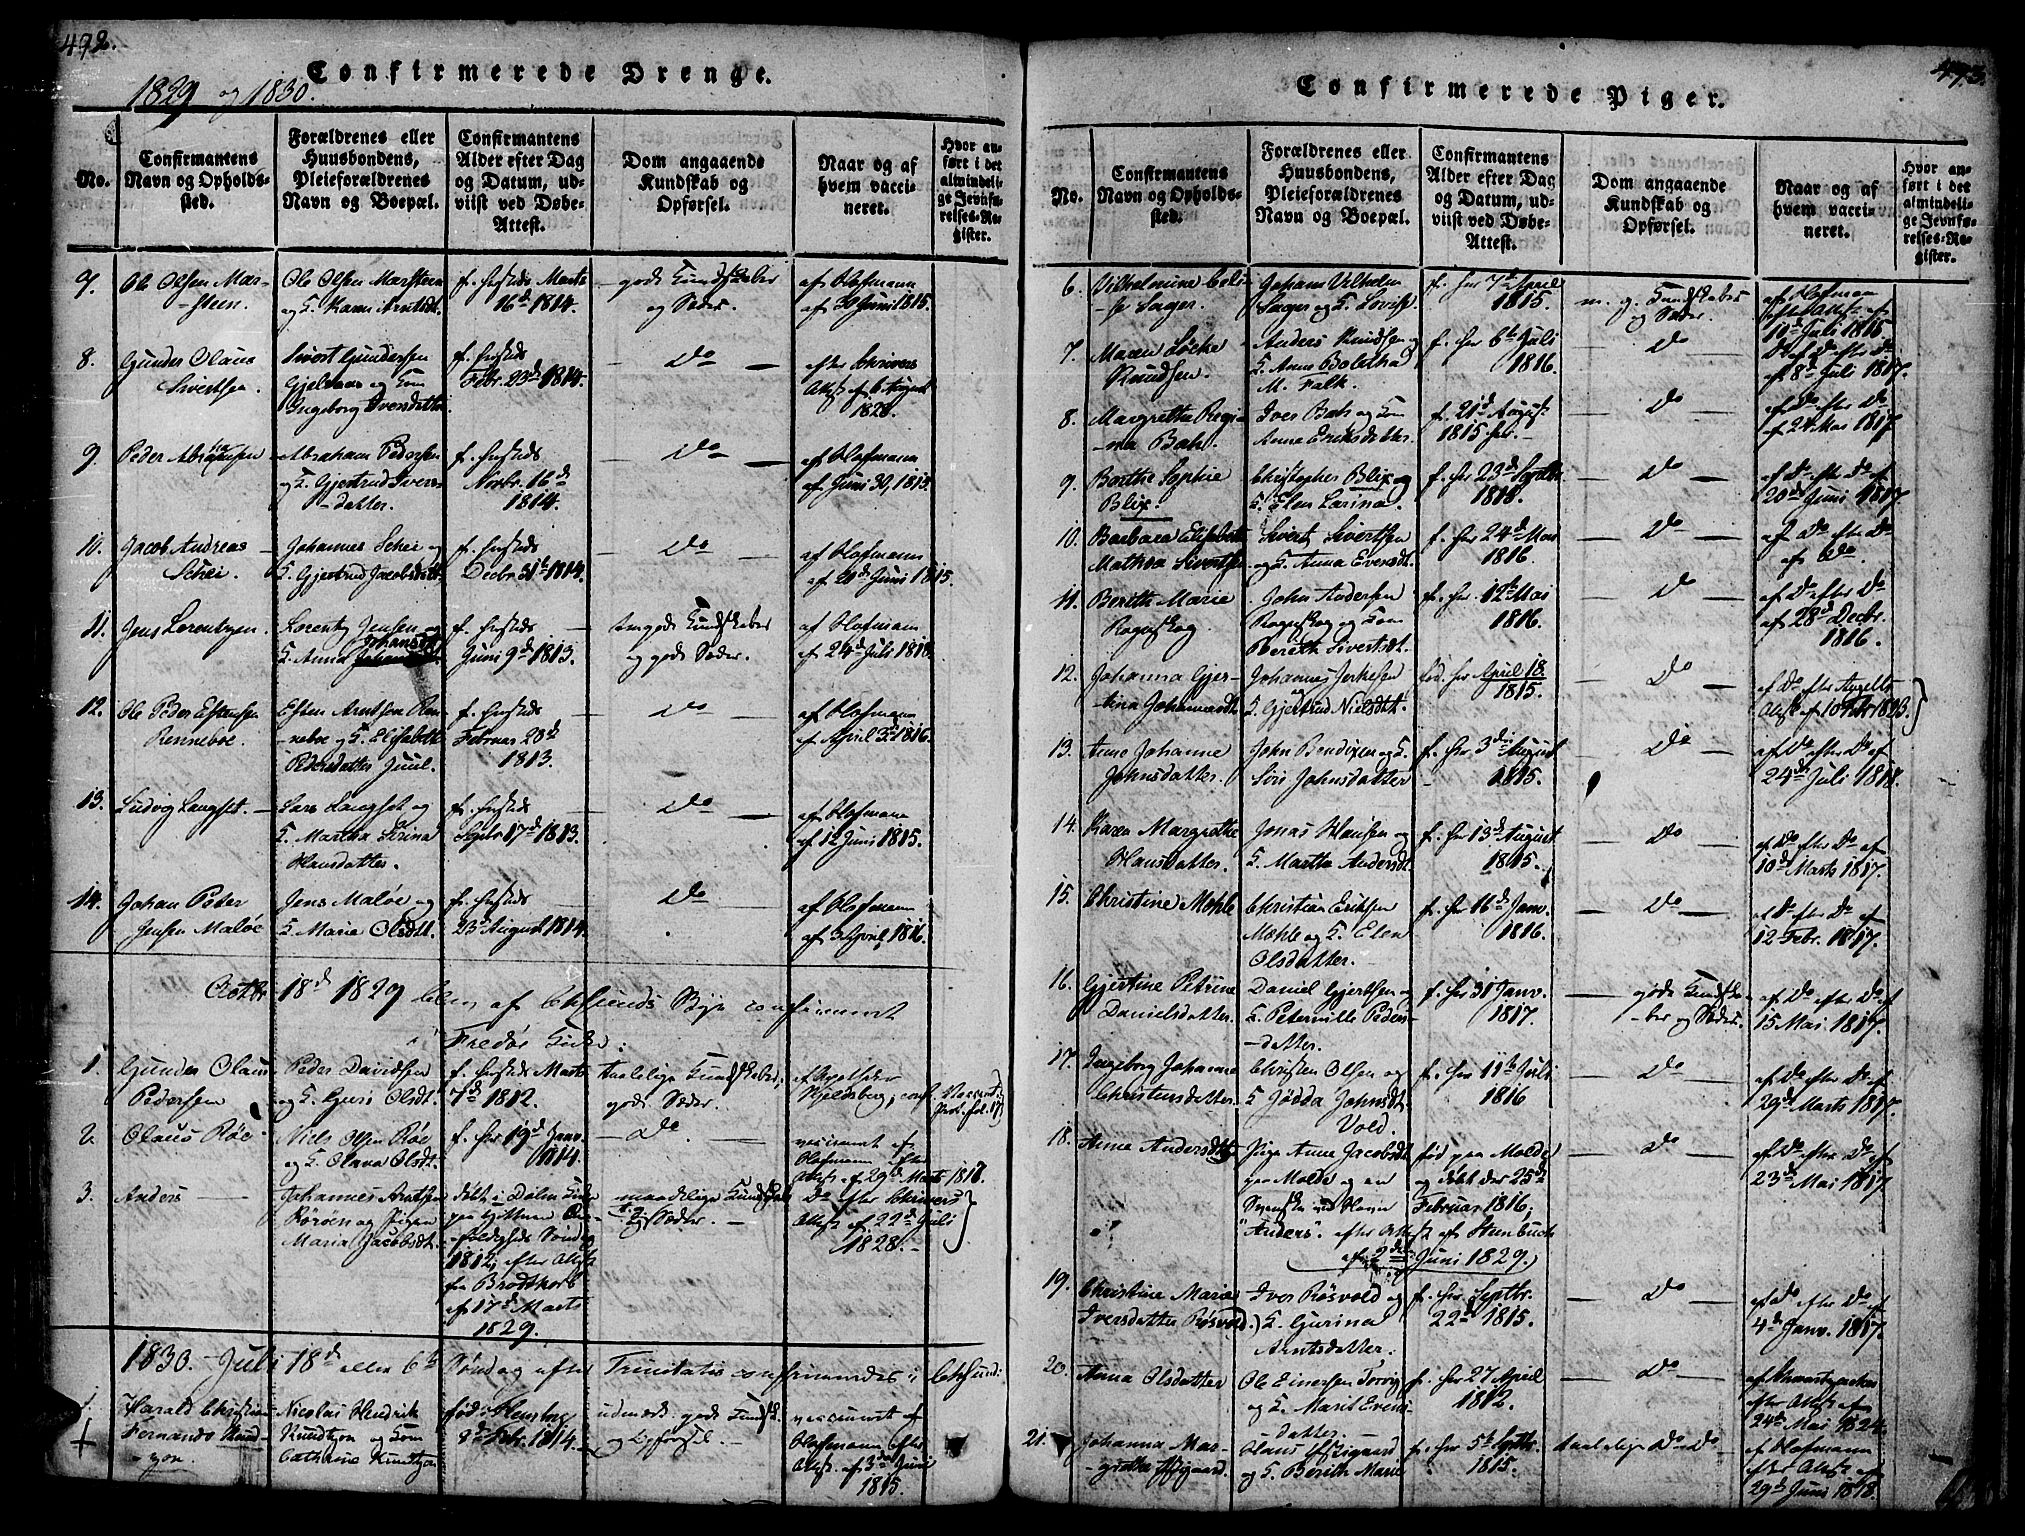 492.
Confirmerede Drenge.
1829 og 1830.
No.
Confirmantens Navn og Opholdssted.
Forældrenes eller Huusbondens, Pleieforældrenes Navn og Boepæl.
Confirmantens Alder efter Dag og Datum, udviist ved Døbe-Attest.
Dom angaaende Kundskab og Opførsel.
Naar og af hvem vaccineret.
Hvor anført i det almindelige Jevnførelses-Register.
Ole Olsen Mar-
-steen
Ole Olsen Marsteen
og K. Karen Arntsdt.
16d 1814.
gode Kundskaber
og Sæder.
af Hofmann
af 30 Juni 1815.
8. Gunder Claus
Sivertsen
Sivert Gundersen
og Kone
Ingeborg Iversdatter
Febr. 23d 1814.
Do
efter Schrivers
Attest af 6 August
1828.
9. Peder Abrahamsen
Abraham Pedersen
og K. Gjertrud Ivers-
-datter.
Novbr. 16d
1814.
Do
af Hofmann
af Juni 30, 1815.
10. Jacob Andreas
Schei.
Johannes Schei og
K. Gjertrud Jacobsdt.
Decbr. 31te 1814.
Do
af Hofmann
1815.
11. Jens Lorentzen.
Lorentz Jensen og
K. Anna Johansdt.
Juni 9d 1813.
tmgode Kundskaber
og gode Sæder.
af Hofmann
af 24d Juli 1818.
12. Ole Peder Estensen
Renneboe.
Esten Arntsen Ren-
neboe og K. Elisabeth
Pedersdatter Juul.
Februar 28d
1813.
Do
af Hofmann
af April 3d 1816.
13. Ludvig Langset.
Lars Langset og
K. Martha Serina
Hansdatter.
Sptbr. 17d 1813.
Do
af Hofmann
af 12 Juni 1815.
14. Johan Peter
Jensen Maløe
Jens Maløe og
K. Marie Olsdt.
23d August 1814.
Do
af Hofmann
af 3 April 1816.
Octbr 18d 1829 blev af Chrsunds Bye confirmeret
i Fredøe Kirke:
1. Gunder Claus
Pedersen
Peder Davidsen
og K. Guri Olsdt.
7d 1812.
Taalelige Kundskaber,
gode Sæder.
2. Claus Røe
Niels Olsen Røe
og K. Olava Olsdt.
f. her 19d Janv.
1814.
Do
vaccineret af
Hofmann efter
Attest af 29d Marts 1818.
3. Anders
Johannes Arntsen
Rørøen og Pigen
Maria Jacobsdt.
1812, efter Attest
fra Brodtkorb
af 17d Marts
1829.
maadelige Kundskaber
Do efter Schrivers
Attest af 22d Juli
1828.
1830. Juli 18d eller 6te Søndag efter Trinitatis confirmeredes i Chrsund:
1. Harald Christian
Fernando Knud-
-tzon.
Nicolai Hendrik
Knudtzon og Kone
Cathrine Knudtzon
8d Febr. 1814.
udmærk. gode Kundsk.
og Opførsel.
vaccineret af
Hofmann efter
Attest af 3die Juni
1815.
493.
Confirmerede Piger.
No.
Confirmantens Navn og Opholdssted.
Forældrenes eller Huusbondens, Pleieforældrenes Navn og Boepæl.
Confirmantens Alder efter Dag og Datum, udviist ved Døbe-Attest.
Dom angaaende Kundskab og Opførsel.
Naar og af hvem vaccineret.
Hvor anført i det almindelige Jevnførelses-Register.
6. Vilhelmine Celi-
-se Sager.
Johan Vilhelm
Sager og K. Lovise
f. her 7de April
1815.
m. g. Kundskaber
og Sæder.
af Hofmann
efter Attest af
19d Juli 1815
7. Maren Løche
Knudsen.
Anders Knudsen og
K. Anne Boletha
M. Falk.
f. her 6te Juli
1816.
Do
af Do efter Do
af 8de Juli 1817.
8. Margrethe Regi-
-na Bah.
Iver Bah og Kone
Anne Eriksdatter.
f. 21d August
1815 her.
Do
af Do efter Do
af 24 Mai 1817.
9. Berthe Sophie
Blix.
Christopher Blix og
K. Elen Carina
f. her 23d Septbr.
1816.
Do
af Do efter Do af
20de Juni 1817.
10. Barbara Elisabeth
Mathea Sivertsen
Sivert Sivertsen
og K. Anna Eversdt.
f. her 24d Mai
1816.
Do
af Do efter Do
af Do
11. Bereth Marie
Rogneskog.
John Andersen
Rogneskog og Kone
Bereth Sivertsdt.
f. her 12te Mai
1816.
Do
af Do efter Do
af 28d Decbr.
1816.
12. Johanna Gjer-
-tina Johannesdt.
Johannes
K. Gjertrud Nielsdt.
fød. her April 18
1815.
Do
af Do efter Angells
Attest af 10 Febr 1823.
13. Anne Johanne
Johnsdatter.
John Bendixen og K.
Siri Johnsdatter
f. her 3die August
1815.
Do
af Do efter Do af
24de Juli 1818.
14. Karen Margrethe
Hansdatter.
Jonas Hansen og
K. Martha Andersdt.
f. her 13d August
1815.
Do
af Do efter Do af
10d Marts 1817.
15. Christine Mohle
Christian Eriksen
Mohle og K. Elen
Olsdatter.
f. her 16d Janv.
1816.
Do
af Do efter Do af
12 Febr. 1817.
16. Gjertine Petrine
Danielsdatter.
Daniel Gjertsen og
K. Peternille Peders-
-datter.
f. her 31 Janv.
1817.
gode Kundska-
-ber og Sæder.
af Do efter Do af
15 Mai 1817.
17. Ingeborg Johanne
Christensdatter.
Christen Olsen og
K Jødda Johnsdt.
Vold.
f. her 11te Juli
1816
Do
af Do efter Do af
29d Marts 1817.
18. Anne Andersdt.
Pige Anne Jacobsdt
paa Molde og en
Svenske ved Navn
"Anders". efter Attest af Steenbuch
af 2den Juni 1829.)
fød paa Molde
og døbt der 25d
Februar 1816;
Do
af Do efter Do af
23d Mai 1817.
19. Christine Marie
Iversdatter Røsvold.
Iver Røsvold og
K. Gurina
Arntsdatter.
f. her Septbr.
22d 1815.
Do
af do efter Do af
4d Janv. 1817.
20. Anna Olsdatter
Ole Einersen Torvig
og K. Marit Evens-
-datter.
f. her 27 April
1812.
Do
efter Attest af
24de Mai 1824.
21. Johanna Mar-
-grethe
og K. Berith Marie
f. her 5te Septbr.
1815.
taalelige Do Do
af Hofmann
efter Attest af
29d Juni 1818.